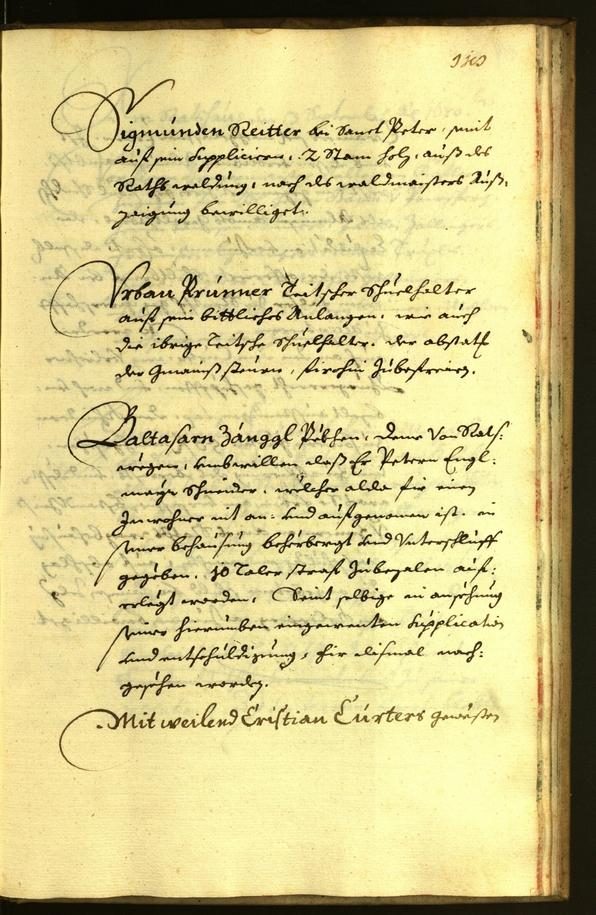 Sigmunden Reitter bei Sanct Peter, seint
auf sein Suppliciern, 2 Stam holz, auß des
Raths waldung, nach des waldmaisters Auß-
zaigung bewilliget.
Urban Prunner Teitscher Schuelhalter
auf sein bittliches Anlangen, wie auch
die ibrige Teitsche Schuelhalter, der abstatt
der Gmain steurn, firohin zubefreien.
Baltasarn Zänggl Pekhen, deme von Rats-
wegen, umbwillen daß Er Petern Engl-
mayr Schneider, welcher alda fir einen
Inwohner nit an- und aufgenomen ist, in
seiner behausung beherbergt und Unterschluff
gegeben, 10 Taler straf zubezalen auf-
erlegt worden, Seint selbige in ansehung
seiner hieriben eingewenten Supplication
und entschuldigung, fir dismal nach-
gesehen worden.
Mit weilend Cristian Curters gewesten